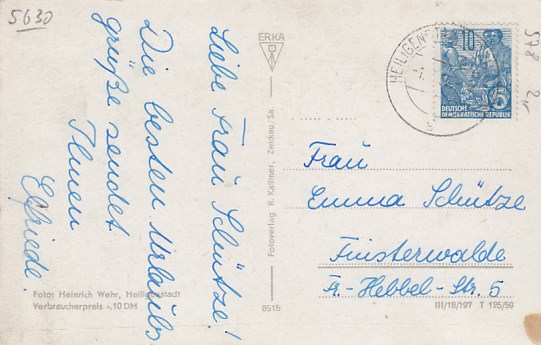 5630
Liebe Frau Schütze!
Die besten Urlaubs
grüße sendet
Ihnen
Elfriede.
Foto: Heinrich Wehr, Heiligenstadt
Verbraucherpreis -.10 DM
ERKA
Fotoverlag R. Kallmer, Zwickau/Sa.
8515
HEILIGENST
10
5
DEUTSCHE
DEMOKRATISCHE REPUBLIK
578
Frau
Emma Schütze
Finsterwalde
Fr.-Hebbel-Str. 5
III/18/197 T 125/59